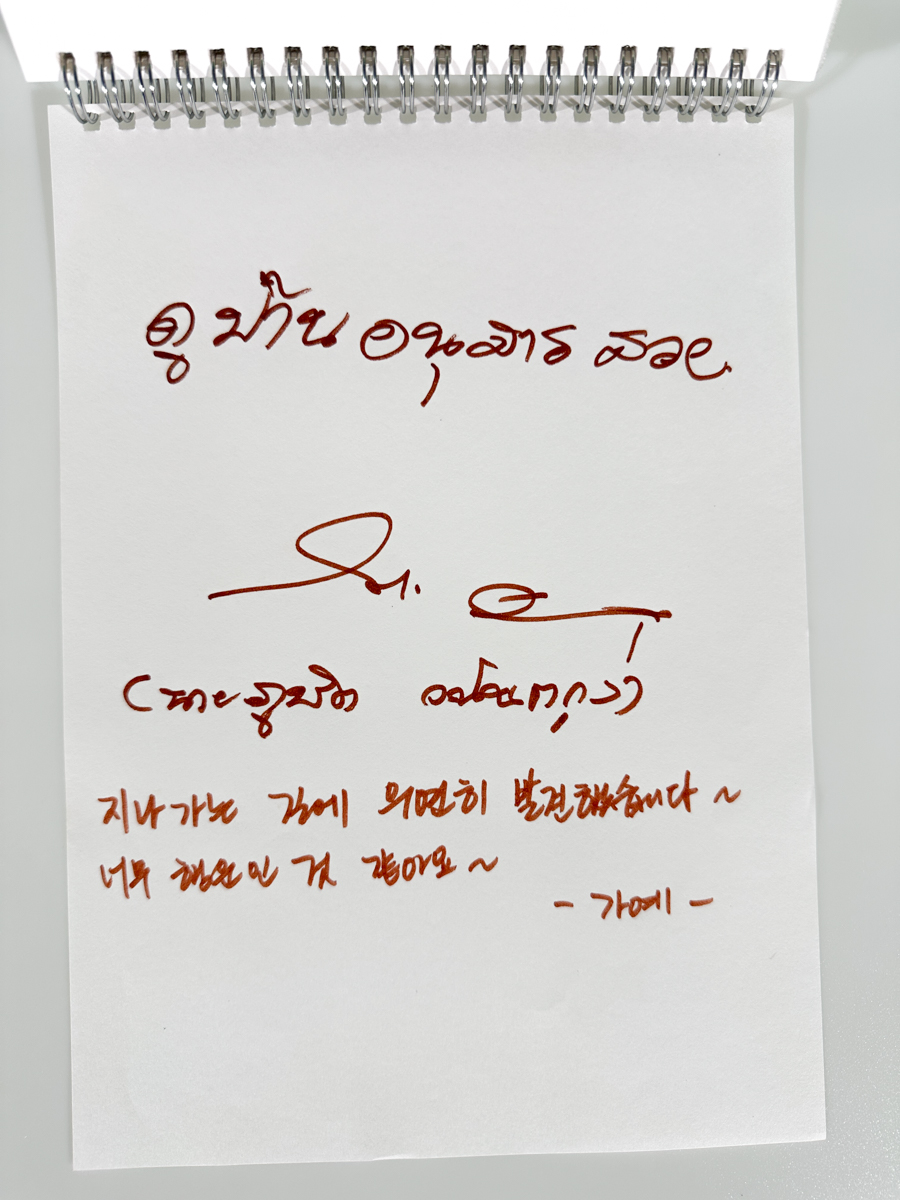 ดูบ้าน อนุสาร สวย
(นายภูษิต
지나가는 길에 우연히 발견했습니다~
너무 행운인 것 같아요~
- 가예 -